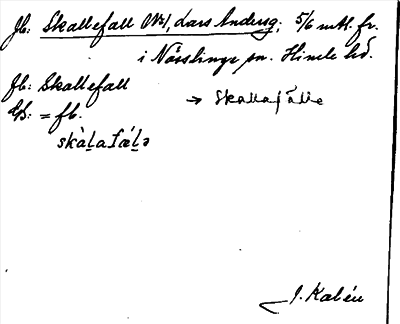 Jb: Skallefall No 1, Lars Andersg; 5/6 mtl. fr.
i Nösslinge sn. Himle hd.
Jb: Skallefall
→ Skallafälle
Uj: = fb.
skàḻafáḻə
J. Kalén